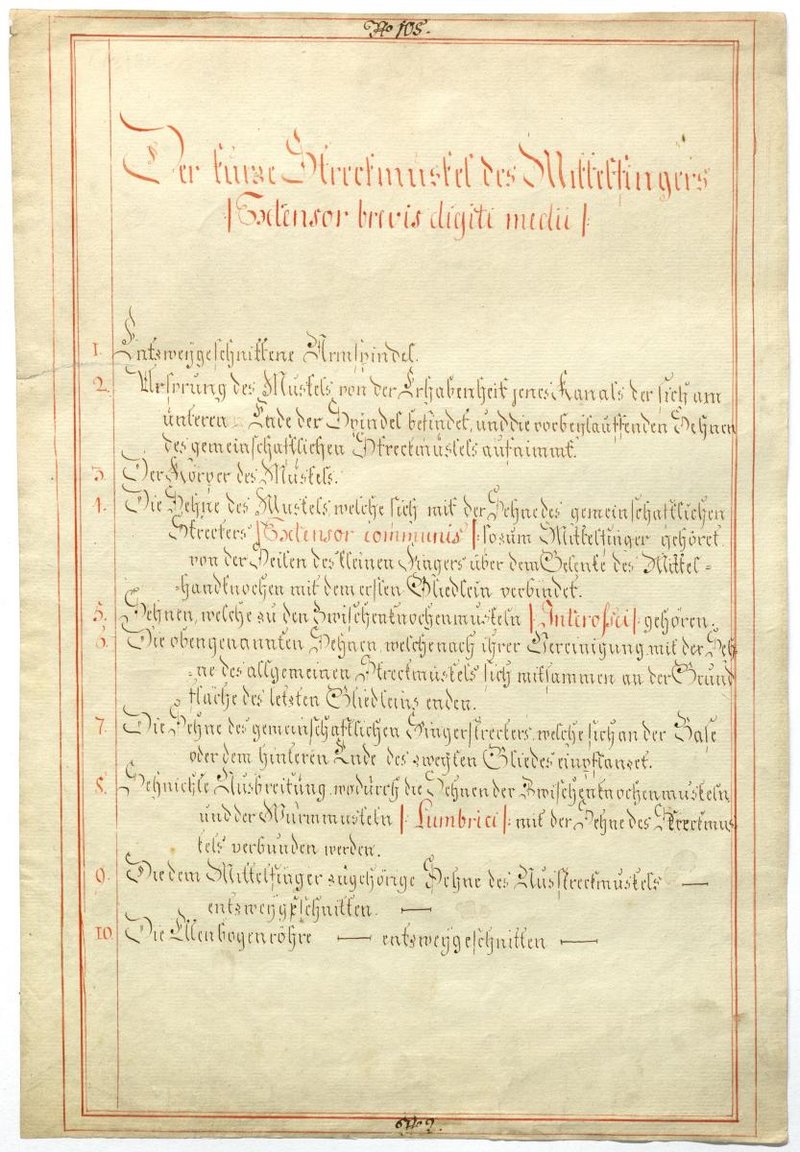 No 105.
Der kurze Streckmuskel des Mittelfingers
|: Extensor brevis digiti medii :|
1. Entzweygeschnittene Armspindel.
2. Ursprung des Muskels von der Erhabenheit jenes Kanals der sich am
unteren Ende der Spindel befindet, und die vorbeylauffenden Sehnen
des gemeinschaftlichen Streckmuskels aufnimmt.
3. Der Körper des Muskels.
4. Die Sehne des Muskels welche sich mit der Sehne des gemeinschaftlichen
Streckers |: Extensor communis :| so zum Mittelfinger gehöret.
von der Seiten des kleinen Fingers über dem Gelenke des Mittel=
=handknochen mit dem ersten Gliedlein verbindet.
5. Sehnen, welche zu den Zwischenknochenmuskeln |: Interossei :| gehören.
6. Die obengenannten Sehnen, welche nach ihrer Vereinigung mit der Seh=
=ne des allgemeinen Streckmuskels sich mitsammen an der Grund
fläche des letzten Gliedleins enden.
7. Die Sehne des gemeinschaftlichen Fingerstreckers, welche sich an der Base
oder dem hinteren Ende des zweyten Gliedes einpflanzet.
8. Sehnichte Ausbreitung, wodurch die Sehnen der Zwischenknochenmuskeln
und der Wurmmuskeln |: Lumbrici :| mit der Sehne des Streckmus
kels verbunden werden.
9. Die dem Mittelfinger zugehörige Sehne des Ausstreckmuskels —
entzweygeschnitten. —
10. Die Ellenbogenröhre — entzweygeschnitten —